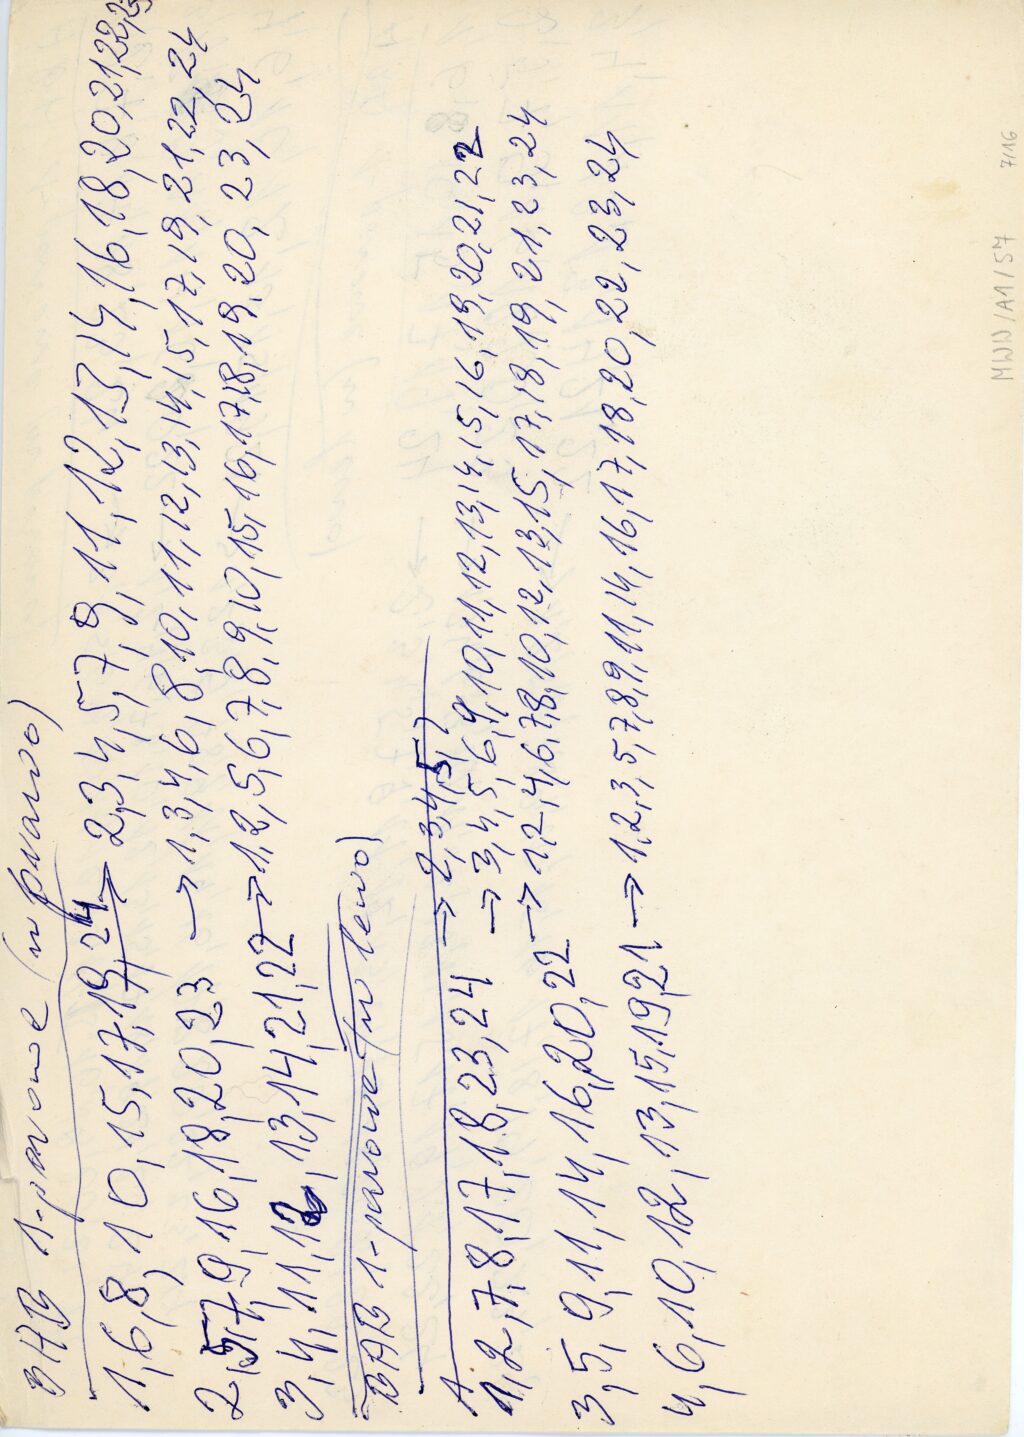 BAB (w prawo)
1,6,8,10,15,17,19,24 → 2,3,4,5,7,9,11,12,13,14,16,18,20,21,22,23
2,5,7,9,16,18,20,23 → 1,3,4,6,8,10,11,12,13,14,15,17,19,21,22,24
3,4,11,12,13,14,21,22 → 1,2,5,6,7,8,9,10,15,16,17,18,19,20,23,24
BAB (w lewo)
1 → 2,3,4,5,7
1,2,7,8,17,18,23,24 → 3,4,5,6,9,10,11,12,13,14,15,16,19,20,21,22
3,5,9,11,14,16,20,22 → 1,2,4,6,7,8,10,12,13,15,17,18,19,21,23,24
4,6,10,12,13,15,19,21 → 1,2,3,5,7,8,9,11,14,16,17,18,20,22,23,24
MWW/A1/57 7/16